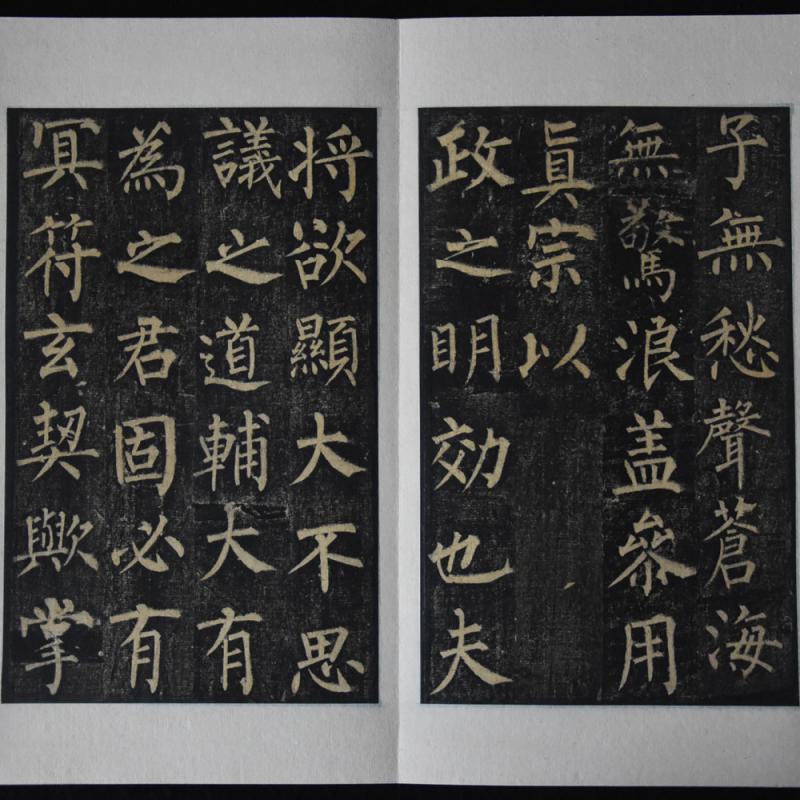 子無愁聲蒼海
無驚浪盖叅用
眞宗以
政之明効也夫
将欲顯大不思
議之道輔大有
為之君固必有
冥符玄契歟掌